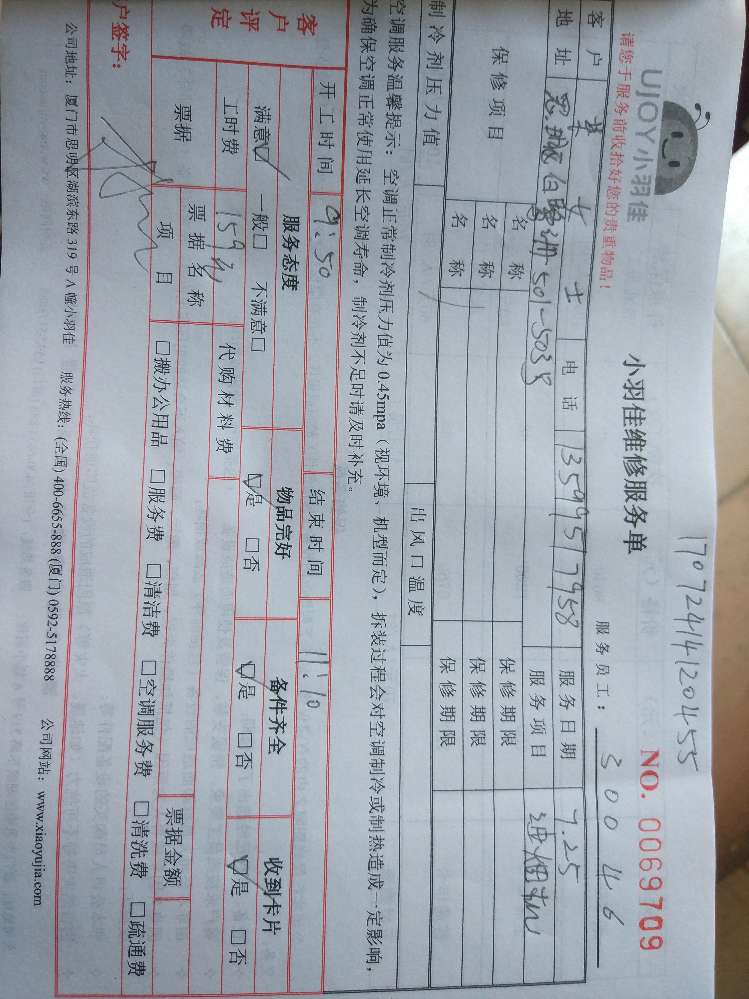 17072414120455
UJOY小羽佳
小羽佳维修服务单
NO. 0069709
请您于服务前收拾好您的贵重物品！
服务员工：30046
客户 女士 电话 13599517958 服务日期 7.25
地址 501-503号 服务项目 油烟机
保修项目 名称 保修期限
名称 保修期限
名称 保修期限
制冷剂压力值 出风口温度
空调服务温馨提示：空调正常制冷剂压力值为0.45mpa（视环境、机型而定），拆装过程会对空调制冷或制热造成一定影响，
为确保空调正常使用延长空调寿命，制冷剂不足时请及时补充。
开工时间 09:50 结束时间 11:10
客户评定 服务态度 物品完好 备件齐全 收到卡片
满意☑ 一般□ 不满意□ ☑是 □否 ☑是 □否 ☑是 □否
工时费 159元 代购材料费
票据 票据名称 票据金额
项目 □搬办公用品 □服务费 □清洁费 □空调服务费 □清洗费 □疏通费
户签字：
公司地址：厦门市思明区湖滨东路319号A幢小羽佳 服务热线：(全国) 400-6655-888 (厦门) 0592-5178888 公司网站：www.xiaoyujia.com